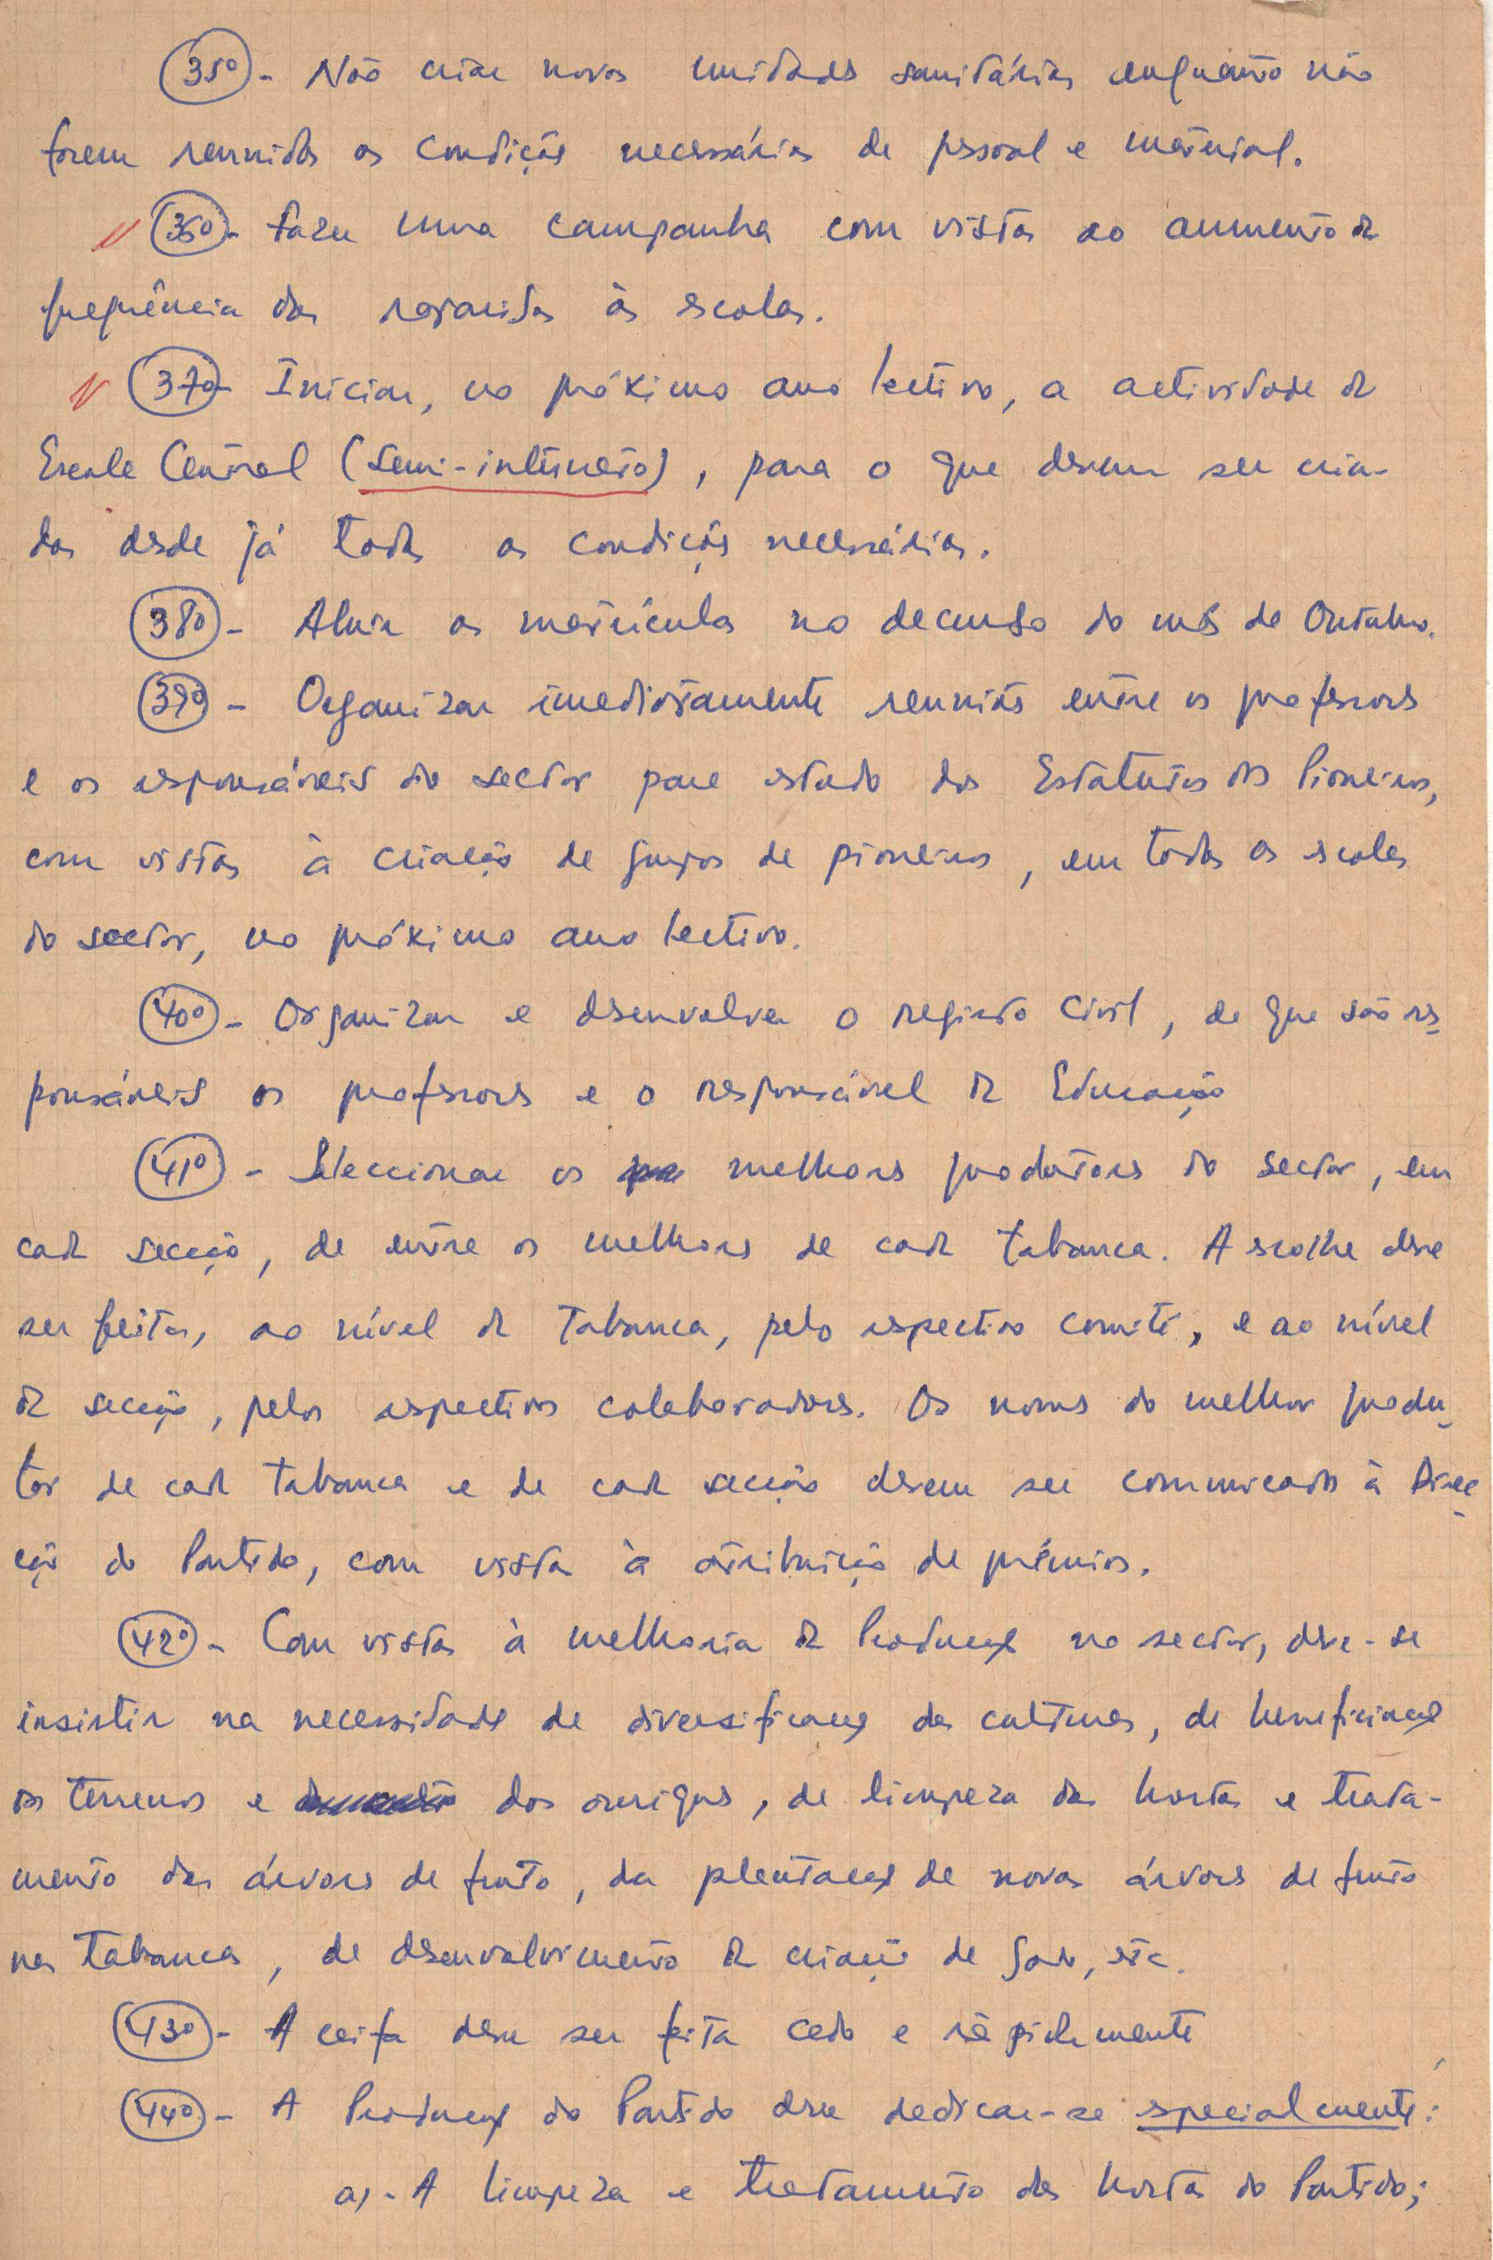 35º - Não criar novas unidades sanitárias enquanto não
forem reunidas as condições necessárias de pessoal e material.
36º - Fazer uma campanha com vistas ao aumento da
frequência das raparigas às escolas.
37º - Iniciar, no próximo ano lectivo, a actividade da
Escola Central (semi-internato), para o que devem ser cria-
das desde já todas as condições necessárias.
38º - Abrir as matrículas no decurso do mês de Outubro.
39º - Organizar imediatamente reuniões entre os professores
e os responsáveis do sector para estudo dos Estatutos dos Pioneiros,
com vistas à criação de grupos de pioneiros, em todas as escolas
do sector, no próximo ano lectivo.
40º - Organizar e desenvolver o registo civil, de que são res-
ponsáveis os professores e o responsável da Educação
41º - Seleccionar os melhores produtores do sector, em
cada secção, de entre os melhores de cada tabanca. A escolha deve
ser feita, ao nível da tabanca, pelo respectivo comité, e ao nível
da secção, pelos respectivos colaboradores. Os nomes do melhor produ-
tor de cada tabanca e de cada secção devem ser comunicados à Direc-
ção do Partido, com vista à atribuição de prémios.
42º - Com vistas à melhoria da Produção no sector, deve-se
insistir na necessidade de diversificação das culturas, de beneficiação
os terrenos e dos ouriques, de limpeza das hortas e trata-
mento das árvores de fruto, da plantação de novas árvores de fruto
nas tabancas, de desenvolvimento da criação de gado, etc.
43º - A ceifa deve ser feita cedo e ràpidamente
44º - A Produção do Partido deve dedicar-se especialmente:
a) - A limpeza e tratamento das hortas do Partido;